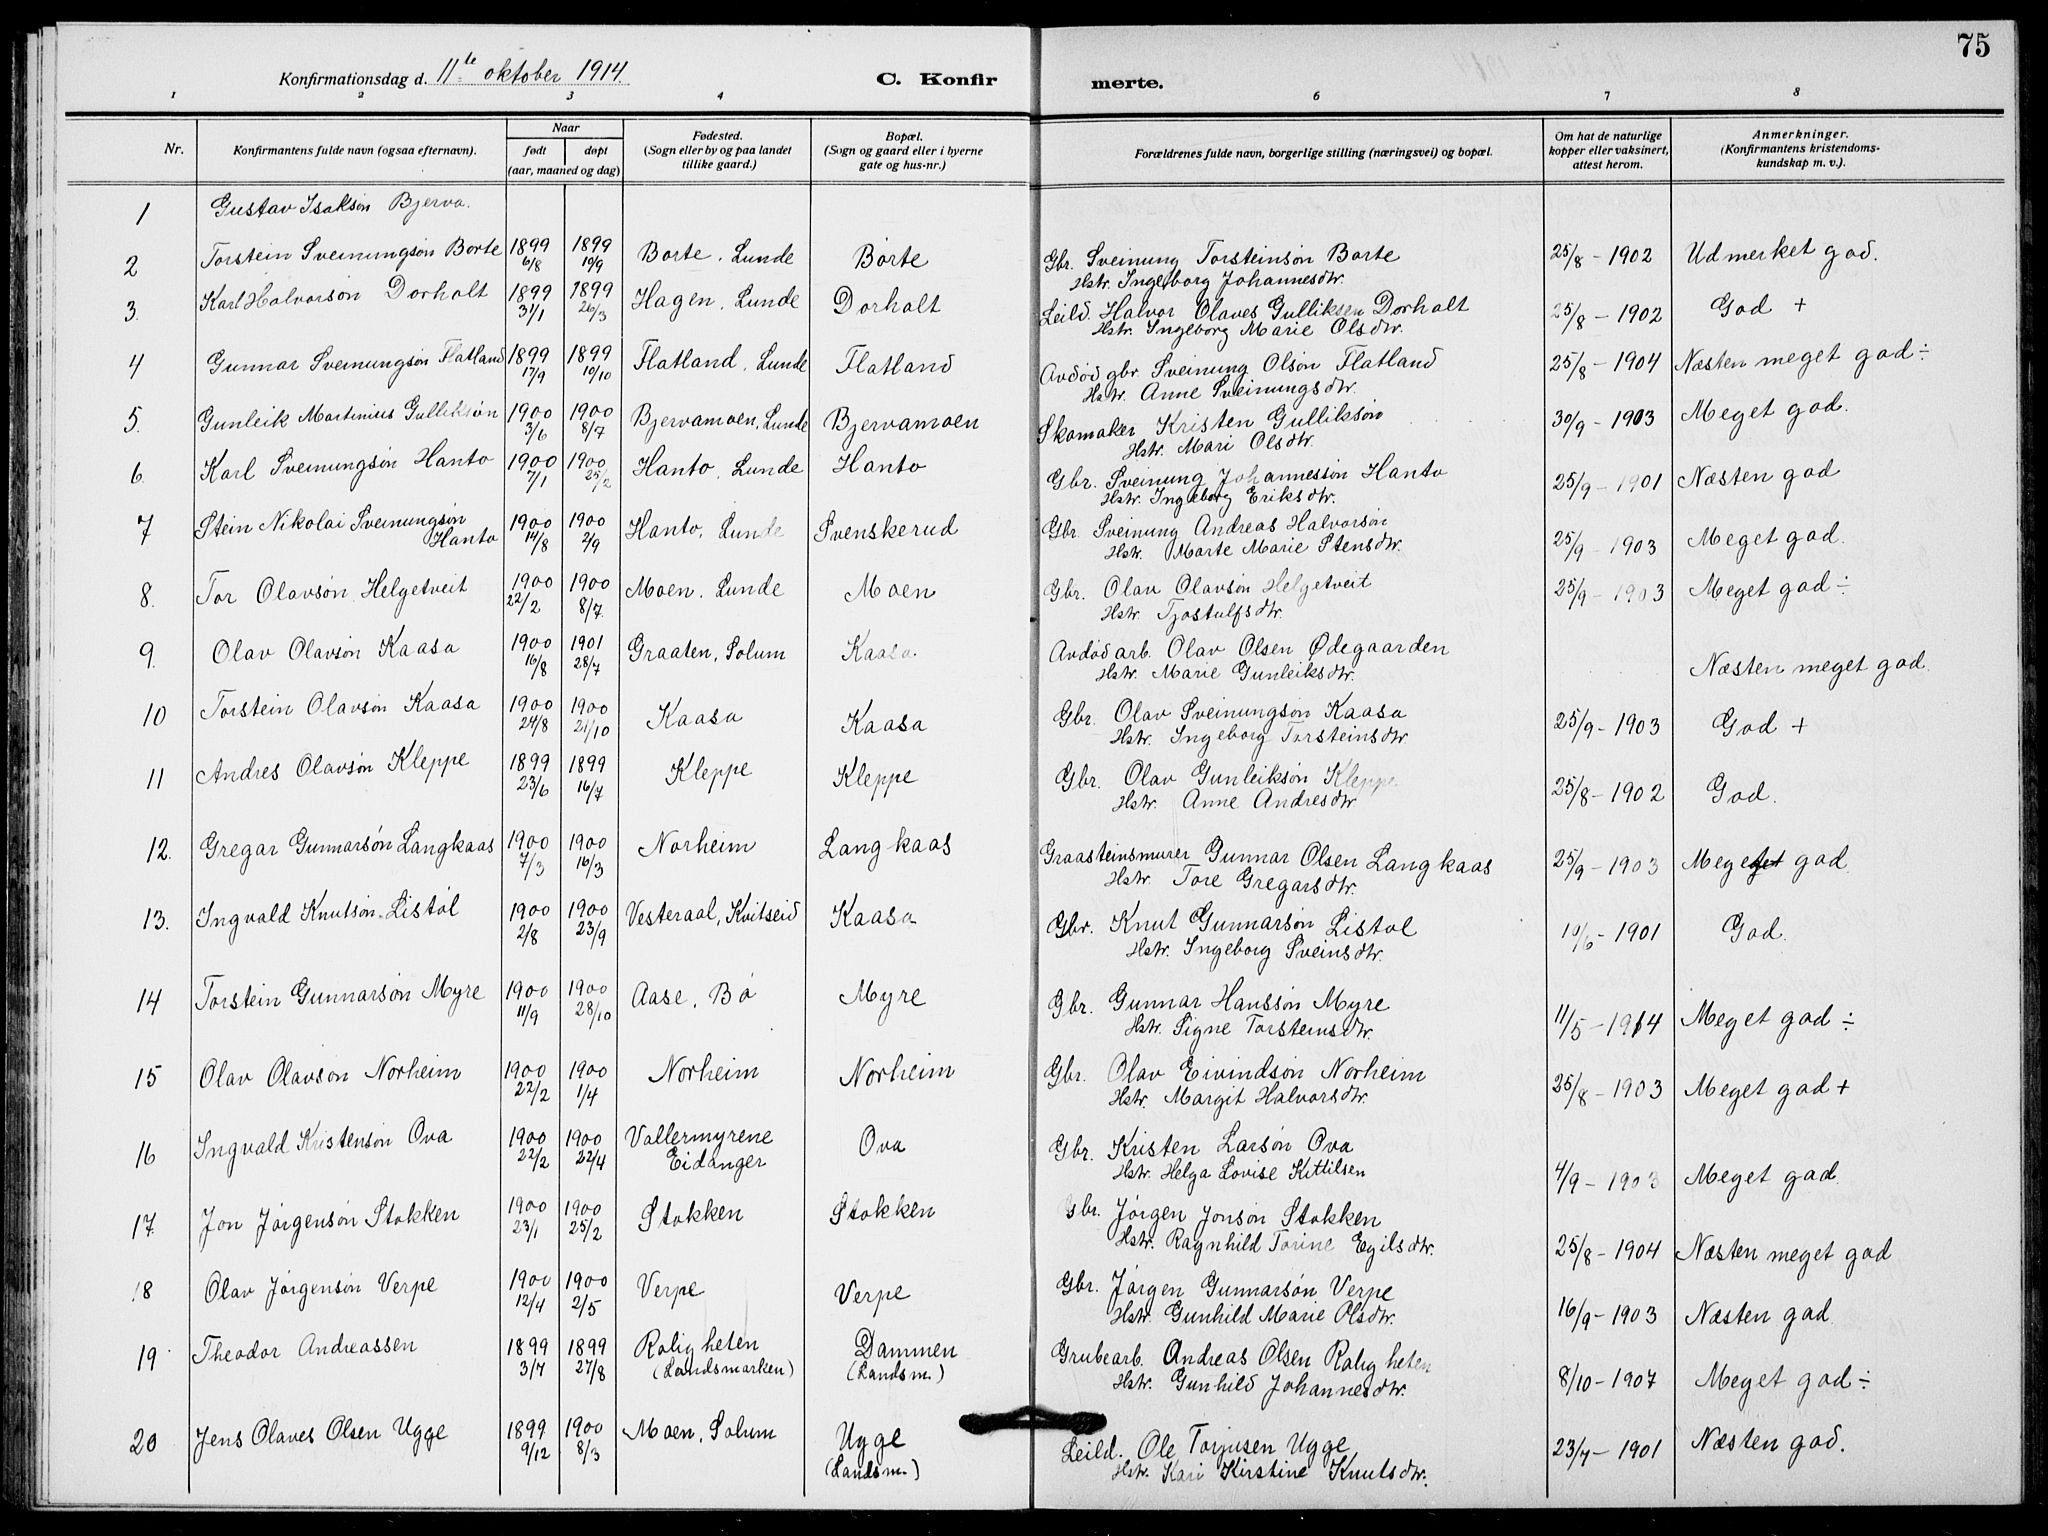 75
Konfirmationsdag d. 11te oktober 1914.
C. Konfirmerte.
1 2 3 4 6 7 8
Nr. Konfirmantens fulde navn (ogsaa efternavn). Naar født døpt (aar, maaned og dag) Fødested. (Sogn eller by og paa landet tillike gaard.) Bopæl. (Sogn og gaard eller i byerne gate og hus-nr.) Forældrenes fulde navn, borgerlige stilling (næringsvei) og bopæl. Om hat de naturlige kopper eller vaksinert, attest herom. Anmerkninger. (Konfirmantens kristendomskundskap m. v.).
1 Gustav Isaksøn Bjerva.
2 Torstein Sveinungsøn Børte 1899 6/8 1899 19/9 Børte, Lunde Børte Gbr. Sveinung Torsteinsøn Børte 25/8 - 1902 Udmerket god.
Hstr. Ingeborg Johannesdtr.
3. Karl Halvorsøn Dorholt 1899 31/1 1899 26/3 Hagen, Lunde Dorholt Leild. Halvor Olaves Gulliksen Dorholt 25/8 - 1902 God +
Hstr. Ingeborg Marie Olsdtr.
4 Gunnar Sveinungsøn Flatland 1899 17/9 1899 10/10 Flatland, Lunde Flatland Avdød gbr. Sveinung Olsøn Flatland 25/8 - 1904 Næsten meget god ÷
Hstr. Anne Sveinungsdtr.
5. Gunleik Martinius Gulliksøn 1900 3/6 1900 8/7 Bjervamoen, Lunde Bjervamoen Skomaker Kristen Gulliksøn 30/9 - 1903 Meget god.
Hstr. Mari Olsdtr.
6. Karl Sveinungsøn Hanto 1900 7/1 1900 25/2 Hanto, Lunde Hanto Gbr. Sveinung Johannessøn Hanto 25/9 - 1901 Næsten god
Hstr. Ingeborg Eriksdtr.
7 Stein Nikolai Sveinungsøn Hanto 1900 14/8 1900 2/9 Hanto, Lunde Svenskerud Gbr. Sveinung Andreas Halvorsøn 25/9 - 1903 Meget god.
Hstr. Marte Marie Stensdtr.
8. Tor Olavsøn Helgetveit 1900 22/2 1900 8/7. Moen, Lunde Moen Gbr. Olav Olavsøn Helgetveit 25/9 - 1903 Meget god ÷
Hstr. Tjostulfsdtr.
9. Olav Olavsøn Kaasa 1900 16/8 1901 28/7 Graaten, Solum Kaasa. Avdød arb. Olav Olsen Ødegaarden Næsten meget god.
Hstr. Marie Gunleiksdtr.
10 Torstein Olavsøn Kaasa 1900 24/8 1900 21/10 Kaasa Kaasa Gbr. Olav Sveinungsøn Kaasa 25/9 - 1903 God +
Hstr. Ingeborg Torsteinsdtr
11 Andres Olavsøn Kleppe 1899 23/6 1899 16/7 Kleppe Kleppe Gbr. Olav Gunleiksøn Kleppe. 25/8 - 1902 God.
Hstr. Anne Andresdtr
12. Gregar Gunnarsøn Langkaas 1900 7/3 1900 16/3 Norheim Langkaas Graasteinsmurer Gunnar Olsen Langkaas 25/9 - 1903 Meget god.
Hstr. Tore Gregarsdtr.
13. Ingvald Knutsøn Listøl 1900 2/8 1900 23/9 Vesteraal, Kvitseid Kaasa Gbr. Knut Gunnarsøn Listøl 10/6 - 1901 God.
Hstr. Ingeborg Sveinsdtr.
14 Torstein Gunnarsøn Myre 1900 11/9 1900 28/10 Aase, Bø Myre Gbr. Gunnar Hanssøn Myre 11/5 - 1914 Meget god ÷
Hstr. Signe Torsteinsdtr.
15 Olav Olavson Norheim 1900 22/2 1900 1/4 Norheim Norheim Gbr. Olav Eivindsøn Norheim 25/8 - 1903 Meget god +
Hstr. Margit Halvorsdtr.
16 Ingvald Kristensøn Ova 1900 22/2 1900 22/4 Vallermyrene Eidanger Ova Gbr. Kristen Larsøn Ova 4/9 - 1903 Meget god.
Hstr. Helga Lovise Kittilsen
17. Jon Jørgensøn Stokken 1900 23/1 1900 25/2 Stokken Stokken Gbr. Jørgen Jonsøn Stokken 25/8 - 1904 Næsten meget god
Hstr. Ragnhild Torine Egilsdtr.
18 Olav Jørgensøn Verpe 1900 12/4 1900 2/5 Verpe Verpe Gbr. Jørgen Gunnarsøn Verpe 16/9 - 1903 Næsten god.
Hstr. Gunhild Marie Olsdtr.
19 Theodor Andreassen 1899 3/7 1899 27/8 Roligheten (Landsmarken) Dammen (Landsm.) Grubearb. Andreas Olsen Roligheten 8/10 - 1907 Meget god ÷
Hstr. Gunhild Johannesdtr.
20 Jens Olaves Olsen Ugge 1899 9/12 1900 8/3 Moen, Solum Ugge (Landsm.) Leild. Ole Torjusen Ugge 23/7 - 1901 Næsten god.
Hstr. Kari Kirstine Knutsdtr.